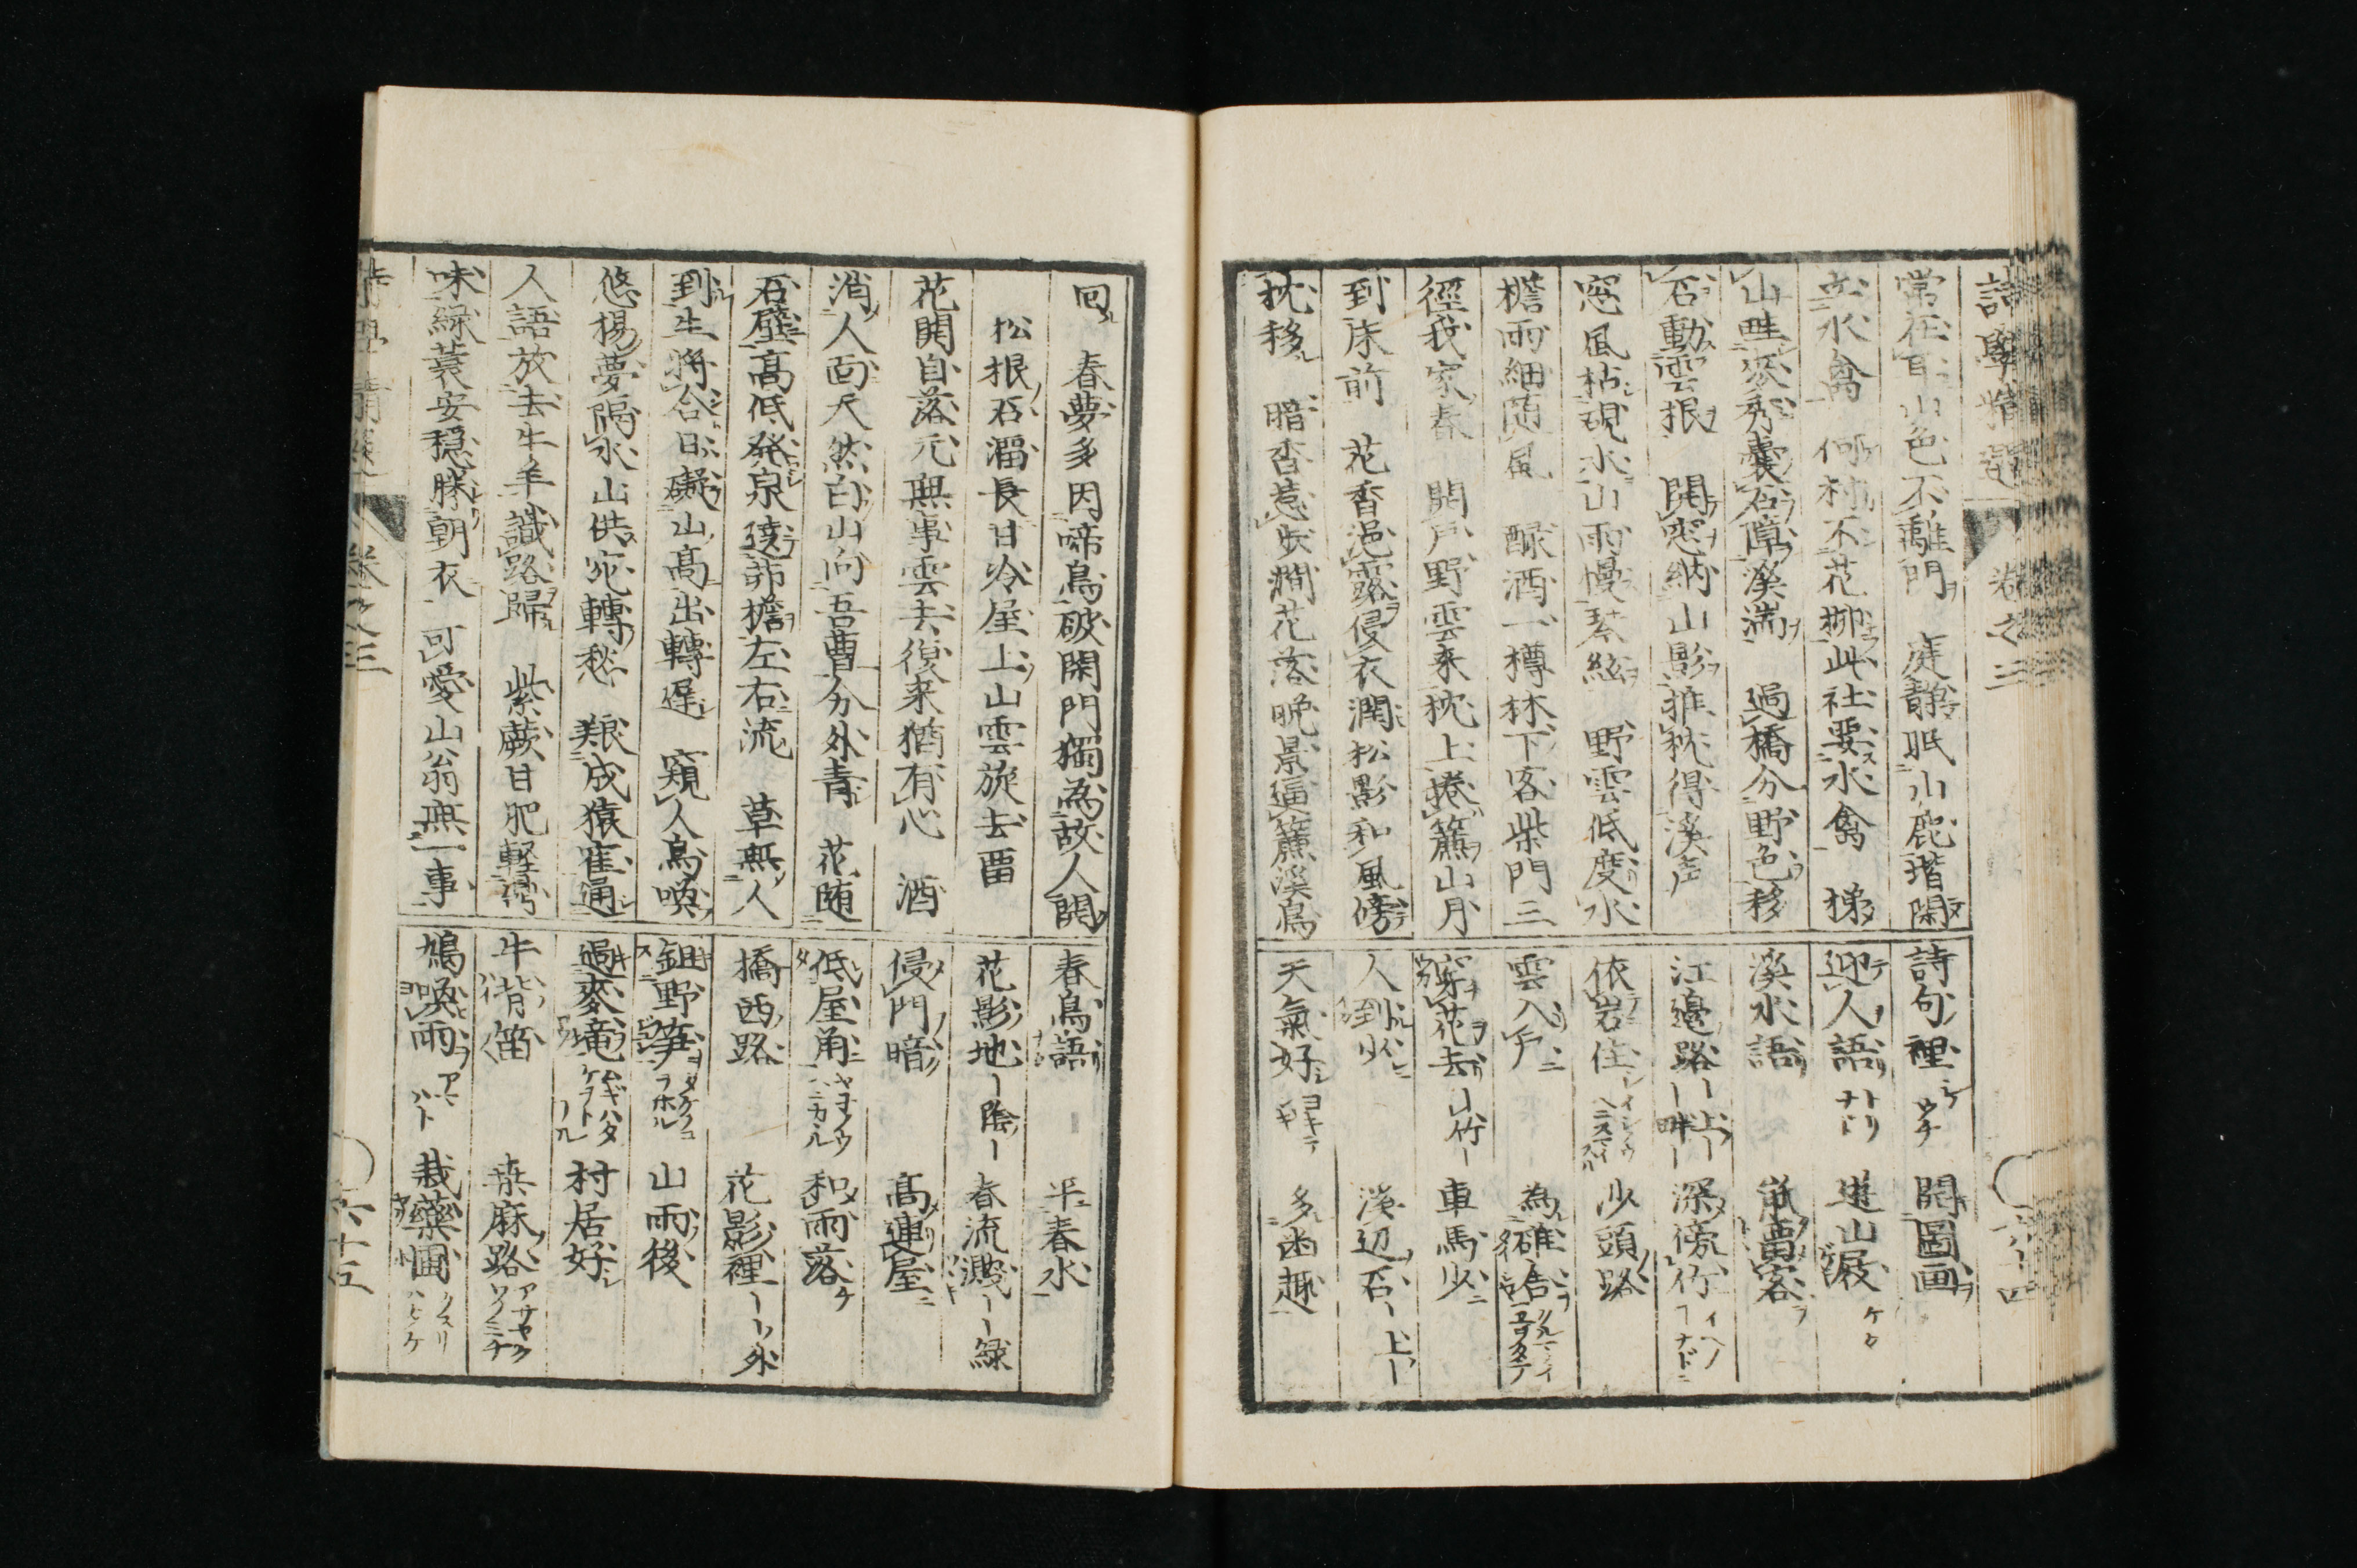 詩學精選 卷之三 六十四
常在耳山色不離門 庭靜眠小鹿堦閑
立水禽 何村不花柳此社要水禽 掃
山畦麥秀囊石導溪湍 過橋分野色移
石動雲根 開窓納山影推枕得溪声
窓風枯硯水山雨慢琴絃 野雲低度水
檐雨細随風 釀酒一樽林下客柴門三
徑我家春 開戶野雲來枕上捲簾山月
到床前 花香浥露侵衣潤松影和風傍
枕移 暗香惹步澗花落晩景逼簾溪鳥
詩句裡 ウチ 開圖画
迎人語 トリ 進山屐
溪水語 留客
江邊路ー上ー畔ー 深傍竹
依岩住 沙頭路
雲入戶
穿花去ー竹ー 車馬少
人到少 溪辺石ー上ー
天氣好 多幽趣
回 春夢多因啼鳥破閑門獨為故人開
松根石溜長甘冷屋上山雲旋去畱
花開自落元無事雲去復来猶有心 酒
消人面天然白山向吾曹分外青 花随
石壁高低発泉遶茆檐左右流 草無人
到生將合日礙山高出轉遲 窺人鳥喚
悠揚夢隔水山供宛轉愁 艱成猿寉通
人語放去牛羊識路歸 紫蕨甘肥輕
味緑蓑安穩勝朝衣 可愛山翁無一事
春鳥語 半春水
花影地ー陰ー 春流濺ーー緑
侵門暗 高連屋
低屋角 和雨落
橋西路 花影裡ーー外
鉏野笋 タケノコヲホル 山雨後
過麥竜 ムギハタケヲトフル 村居好
牛背笛 桒麻路
鳩喚雨 栽藥圃
卷之三 六十五